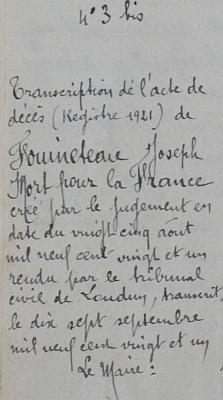 N° 3 bis
Transcription de l'acte de
décès (Registre 1921) de
Fouineteau Joseph
Mort pour la France
créé par le jugement en
date du vingt cinq août
mil neuf cent vingt et un
rendu par le tribunal
civil de Loudun, transcrit
le dix sept septembre
mil neuf cent vingt et un
Le Maire :